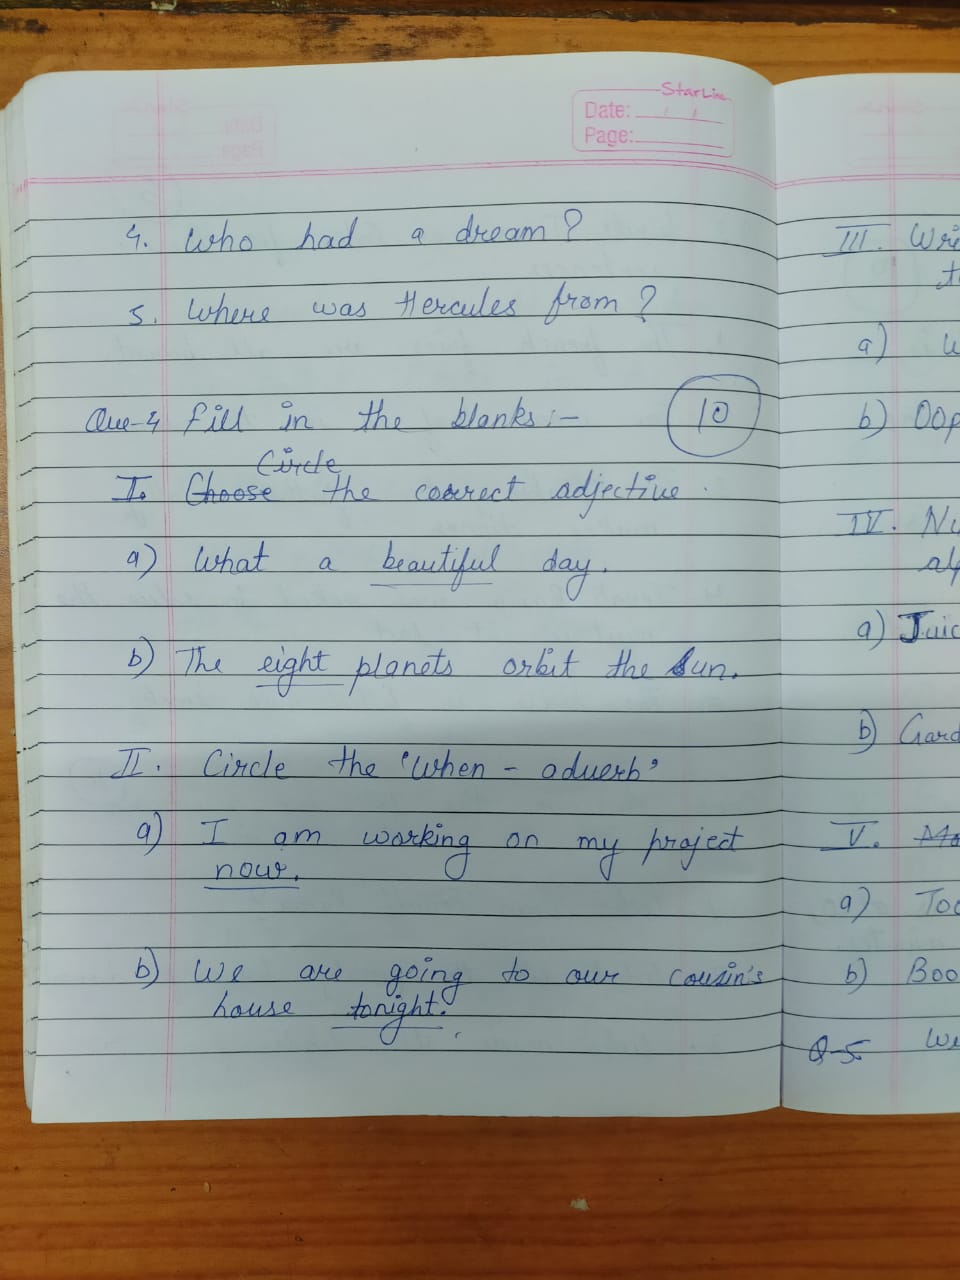 StarLine
Date:
Page:
4. Who had a dream?
5. Where was Hercules from?
Que-4 Fill in the blanks :-
10
Circle
I. Choose the correct adjective.
a) What a beautiful day.
b) The eight planets orbit the Sun.
II. Circle the 'When - adverb'
a) I am working on my project
now.
b) We are going to our cousin's
house tonight.
III.
a)
b)
IV.
a)
b)
V.
a)
b)
Q-5